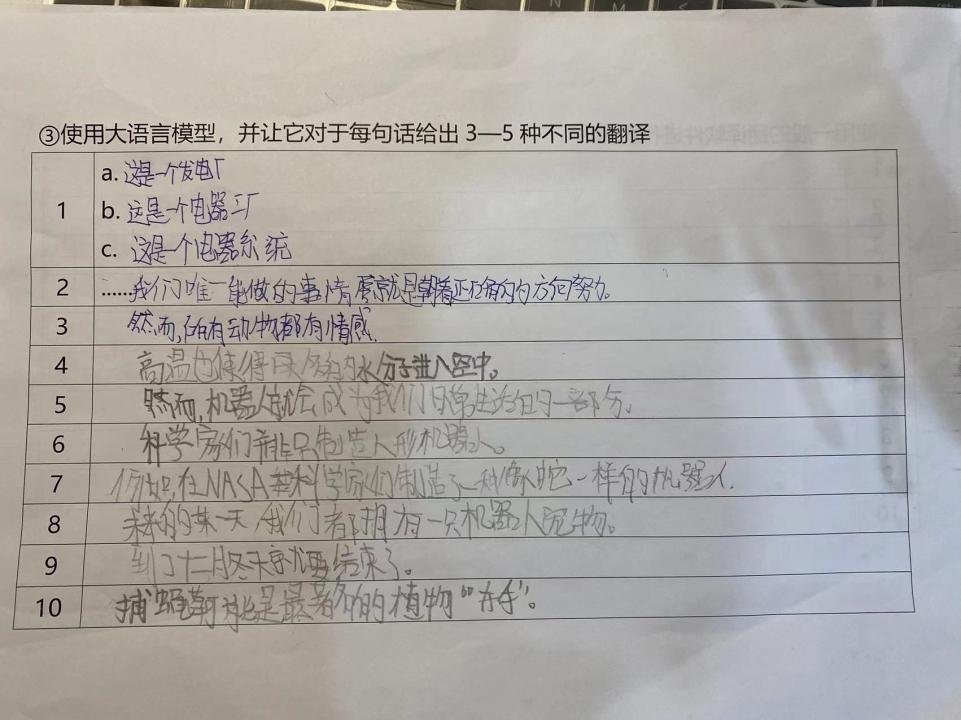 ③使用大语言模型，并让它对于每句话给出 3—5 种不同的翻译
1
a. 这是一个发电厂
b. 这是一个电器工厂
c. 这是一个电器系统
2 ……我们唯一能做的事情就是朝着正确的方向努力。
3 然而,所有动物都有情感.
4 高温也使得 水分子进入空中。
5 然而,机器人就会成为我们日常生活的一部分。
6 科学家们并非只制造人形机器人。
7 例如,在NASA 科学家们制造了一种像蛇一样的机器人.
8 未来的某一天,我们都拥有一只机器人宠物。
9 到了十二月冬天就要结束了。
10 捕蝇草就是最著名的植物“杀手”。